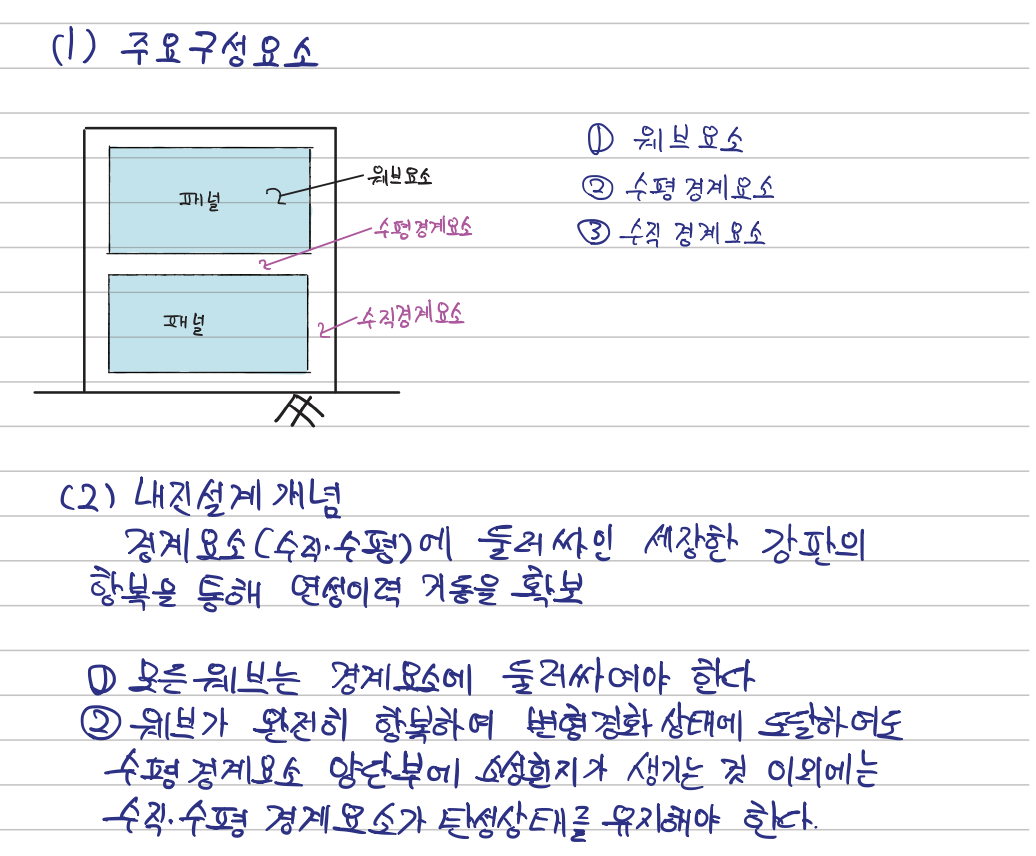 (1) 주요구성요소
① 웨브요소
패널
웨브요소
② 수평경계요소
수평경계요소
③ 수직 경계요소
패널
수직경계요소
(2) 내진설계 개념
경계요소(수직·수평)에 둘러싸인 세장한 강판의
항복을 통해 연성이력 거동을 확보
① 모든웨브는 경계요소에 둘러싸여야 한다
② 웨브가 완전히 항복하여 변형경화 상태에 도달하여도
수평경계요소 양단부에 소성힌지가 생기는 것 이외에는
수직·수평 경계요소가 탄성상태를 유지해야 한다.